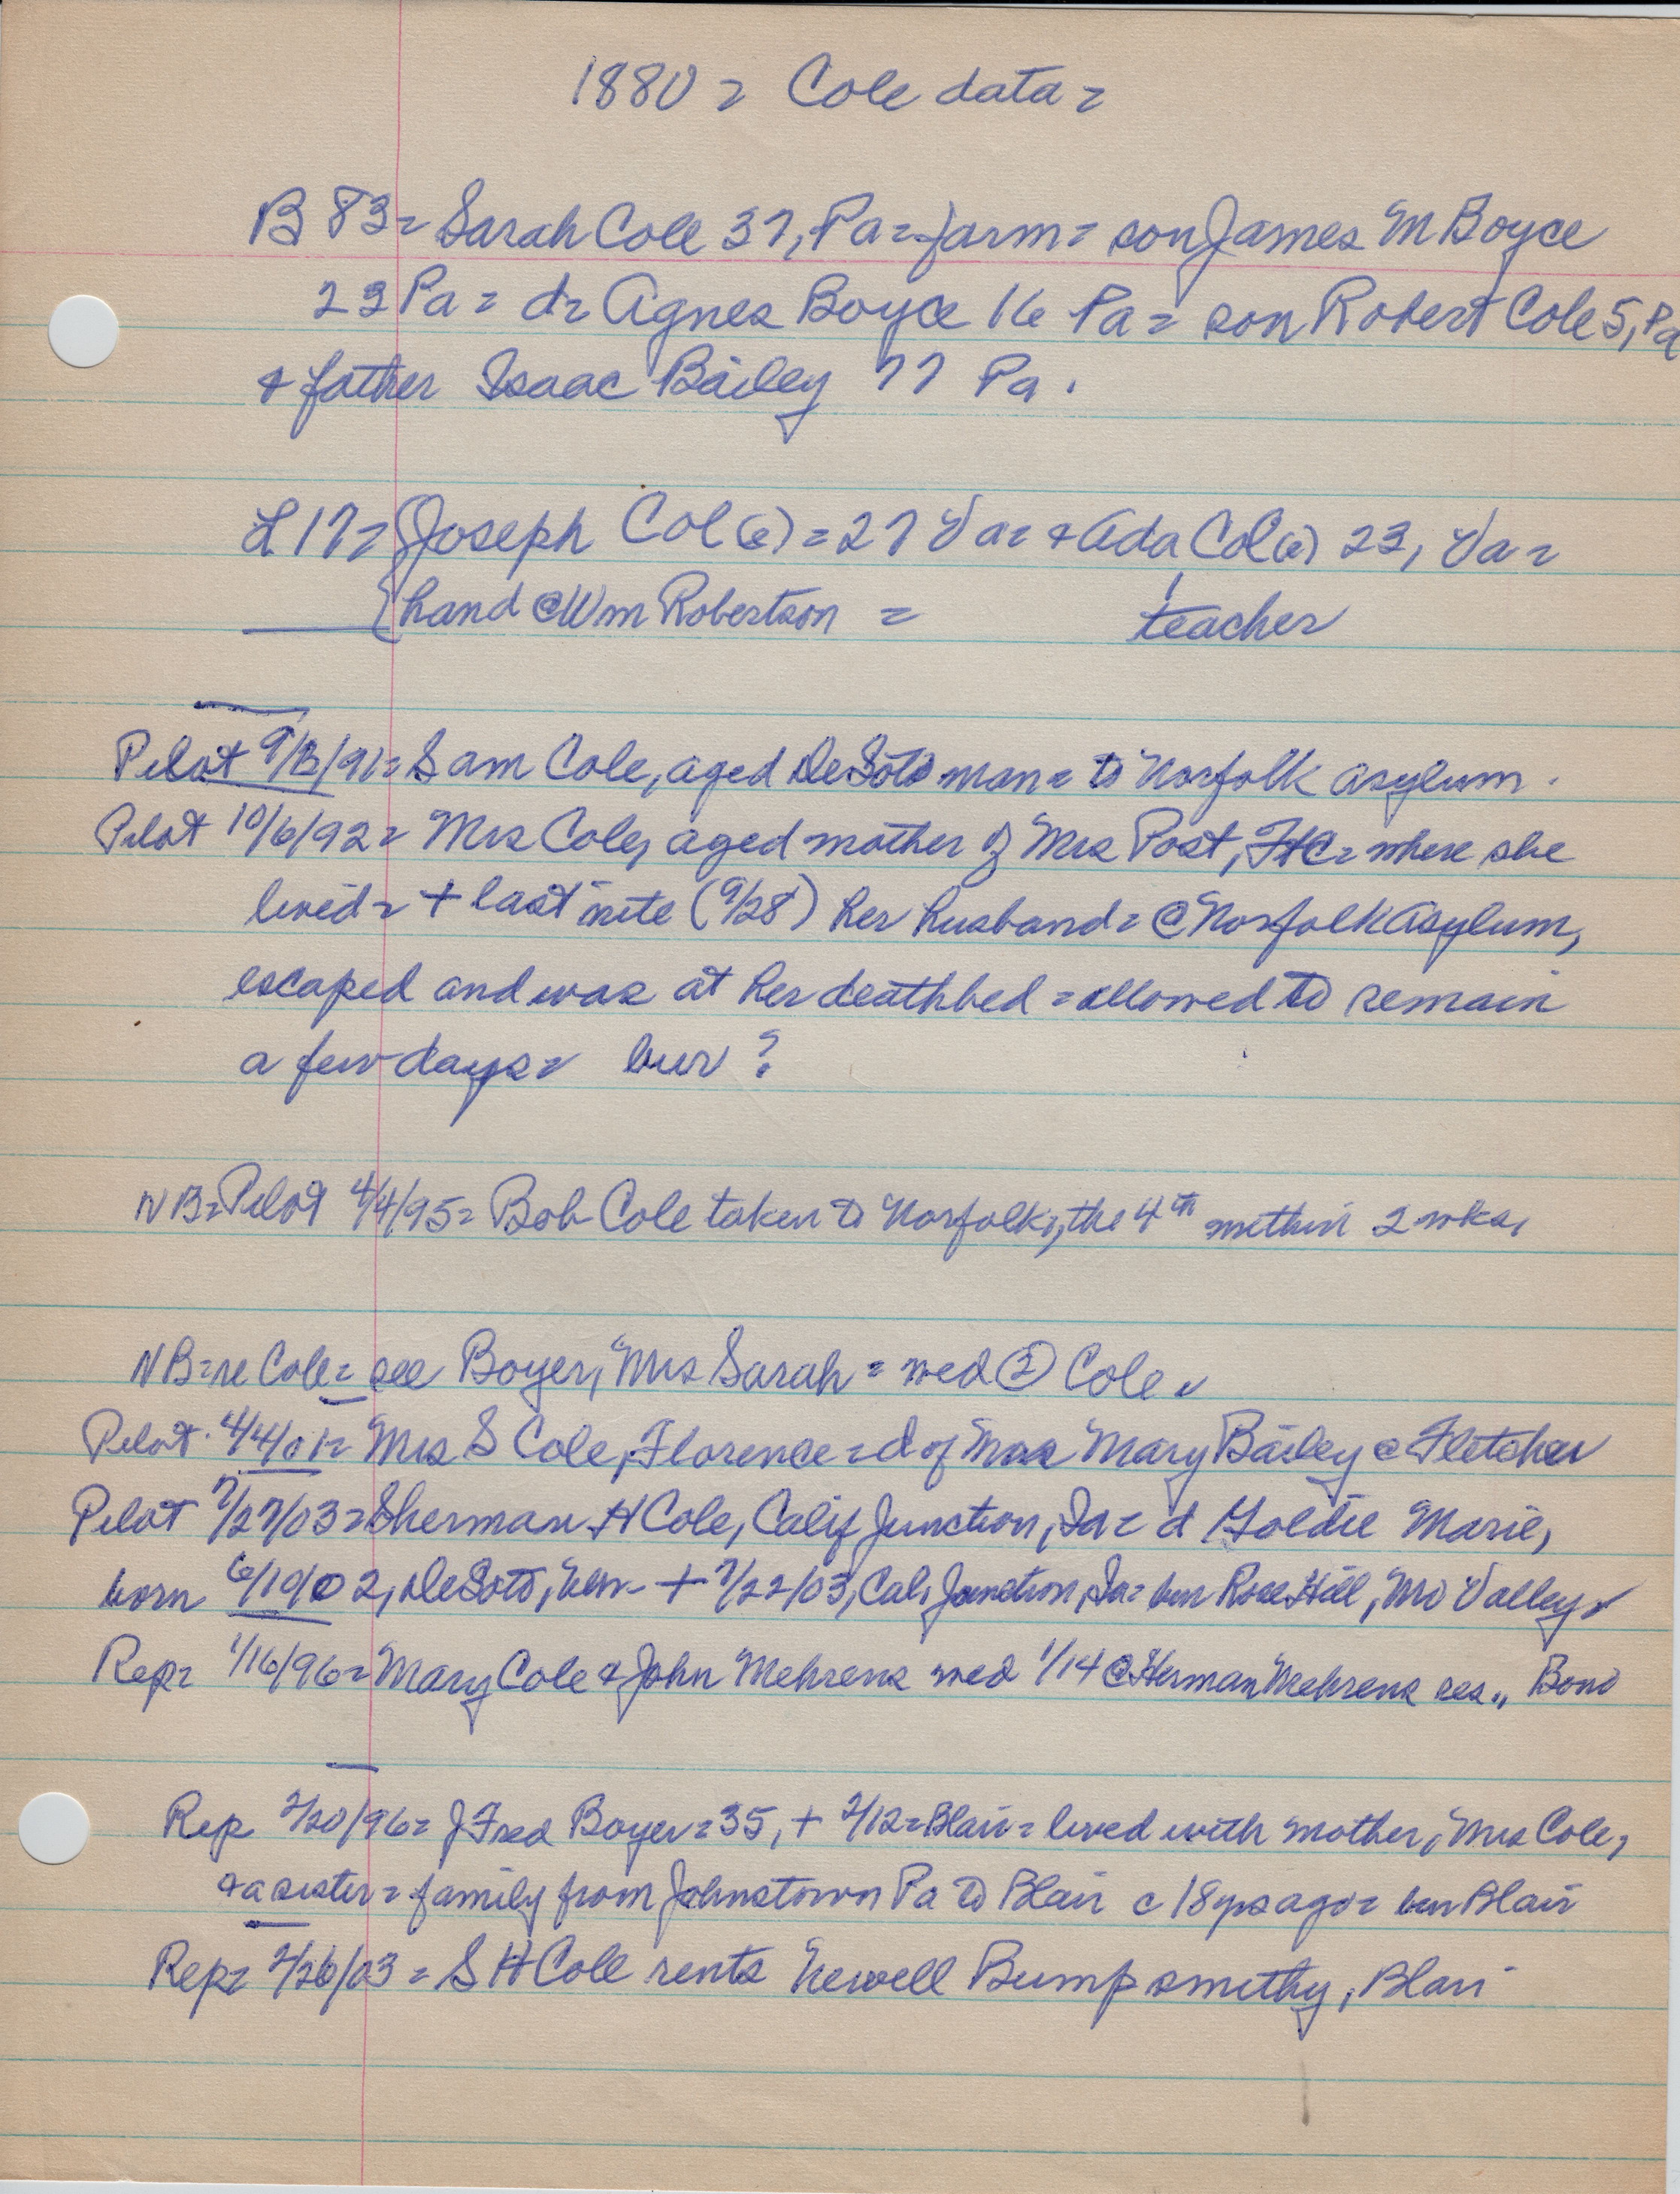 1880 = Cole data =
B 83 = Sarah Cole 37, Pa = farm = son James M Boyce
23 Pa = d = Agnes Boyce 16 Pa = son Robert Cole 5, Pa
+ father Isaac Bailey 77 Pa.
L 17 = { Joseph Col(e) = 27 Va = + Ada Col(e) 23, Va =
{ hand @ Wm Robertson = teacher
Pilot 9/13/91 = Sam Cole, aged DeSoto man = to Norfolk asylum.
Pilot 10/6/92 = Mrs Cole, aged mother of Mrs Post, FtC = where she
lived = + last nite (9/28) her husband = @ Norfolk Asylum,
escaped and was at her deathbed = allowed to remain
a few days = bur ?
NB = Pilot 4/4/95 = Bob Cole taken to Norfolk, the 4th within 2 wks,
NB = re Cole = see Boyer, Mrs Sarah = wed ② Cole =
Pilot 4/4/01 = Mrs S Cole, Florence = d of Mrs Mary Bailey @ Fletcher
Pilot 7/27/03 = Sherman H Cole, Calif Junction, Ia = d Goldie Marie,
born 6/19/02, DeSoto, + 7/22/03, Cal, Junction, Ia = bur Rose Hill, Mo Valley =
Rep = 1/16/96 = Mary Cole + John Mehrens wed 1/14 @ Herman Mehrens res., Bono
Rep 2/20/96 = J Fred Boyer = 35, + 2/12 = Blair = lived with mother, Mrs Cole,
+ a sister = family from Johnstown Pa to Blair c 18 yrs ago = bur Blair
Rep = 2/26/03 = S H Cole rents Newell Bump smithy, Blair